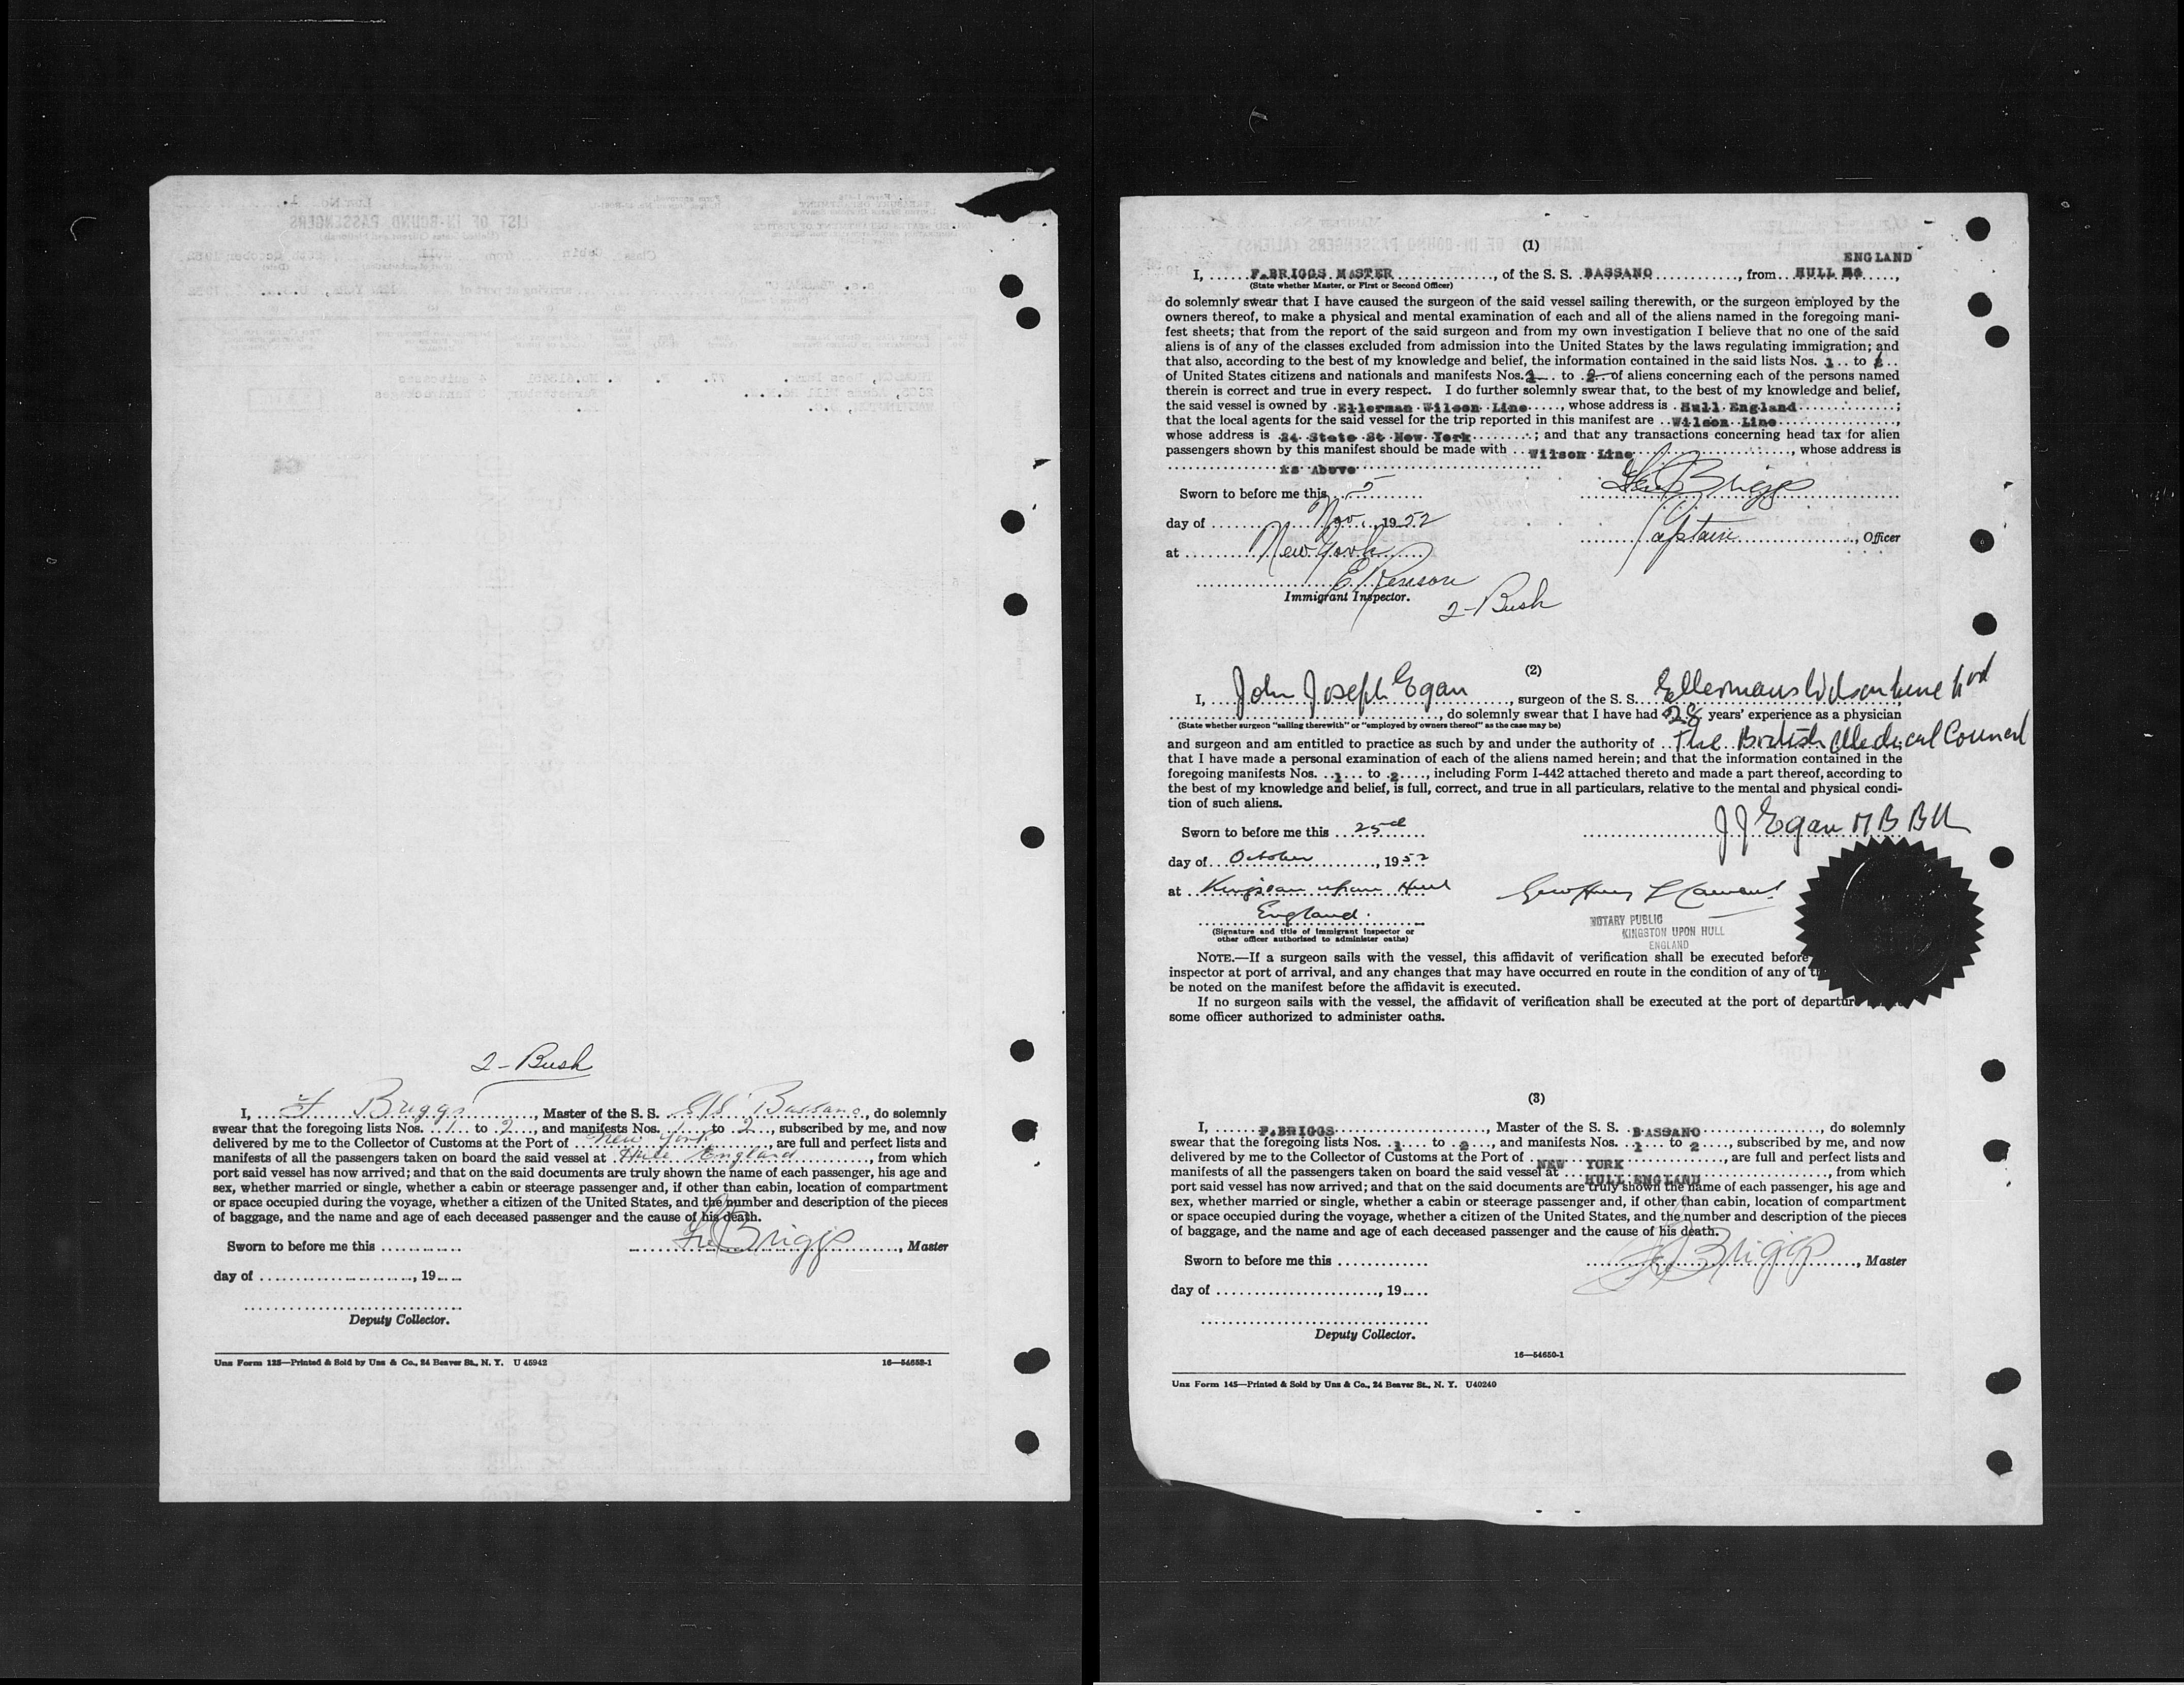 2-Bush
I, F Briggs, Master of the S. S. S/S Bassano, do solemnly
swear that the foregoing lists Nos. 1 to 2, and manifests Nos. 1 to 2, subscribed by me, and now
delivered by me to the Collector of Customs at the Port of New York, are full and perfect lists and
manifests of all the passengers taken on board the said vessel at Hull England, from which
port said vessel has now arrived; and that on the said documents are truly shown the name of each passenger, his age and
sex, whether married or single, whether a cabin or steerage passenger and, if other than cabin, location of compartment
or space occupied during the voyage, whether a citizen of the United States, and the number and description of the pieces
of baggage, and the name and age of each deceased passenger and the cause of his death.
Sworn to before me this
Briggs, Master
day of , 19
Deputy Collector.
Uns Form 125—Printed & Sold by Uns & Co., 24 Beaver St., N. Y. U 45942
16—54658-1
(1)
ENGLAND
I, F.BRIGGS MASTER, of the S. S. BASSANO, from HULL
(State whether Master, or First or Second Officer)
do solemnly swear that I have caused the surgeon of the said vessel sailing therewith, or the surgeon employed by the
owners thereof, to make a physical and mental examination of each and all of the aliens named in the foregoing mani-
fest sheets; that from the report of the said surgeon and from my own investigation I believe that no one of the said
aliens is of any of the classes excluded from admission into the United States by the laws regulating immigration; and
that also, according to the best of my knowledge and belief, the information contained in the said lists Nos. 1 to
of United States citizens and nationals and manifests Nos. 1 to 2 of aliens concerning each of the persons named
therein is correct and true in every respect. I do further solemnly swear that, to the best of my knowledge and belief,
the said vessel is owned by Ellerman Wilson Line, whose address is Hull England;
that the local agents for the said vessel for the trip reported in this manifest are Wilson Line,
whose address is 24 State St New York; and that any transactions concerning head tax for alien
passengers shown by this manifest should be made with Wilson Line, whose address is
As Above
Sworn to before me this 5
Briggs
day of Nov., 1952
Captain, Officer
at New York
Immigrant Inspector.
2-Bush
(2)
I, John Joseph Egan, surgeon of the S. S. Ellermans Wilson Line Ltd
(State whether surgeon "sailing therewith" or "employed by owners thereof" as the case may be), do solemnly swear that I have had 28 years' experience as a physician
and surgeon and am entitled to practice as such by and under the authority of The British Medical Council
that I have made a personal examination of each of the aliens named herein; and that the information contained in the
foregoing manifests Nos. 1 to 2, including Form I-442 attached thereto and made a part thereof, according to
the best of my knowledge and belief, is full, correct, and true in all particulars, relative to the mental and physical condi-
tion of such aliens.
Sworn to before me this 25th
J J Egan M B B Ch
day of October, 1952
at Kingston upon Hull
England.
NOTARY PUBLIC
KINGSTON UPON HULL
ENGLAND
(Signature and title of immigrant inspector or
other officer authorized to administer oaths)
NOTE.—If a surgeon sails with the vessel, this affidavit of verification shall be executed before
inspector at port of arrival, and any changes that may have occurred en route in the condition of any of
be noted on the manifest before the affidavit is executed.
If no surgeon sails with the vessel, the affidavit of verification shall be executed at the port of departure
some officer authorized to administer oaths.
(3)
I, F.BRIGGS, Master of the S. S. BASSANO, do solemnly
swear that the foregoing lists Nos. 1 to 2, and manifests Nos. 1 to 2, subscribed by me, and now
delivered by me to the Collector of Customs at the Port of NEW YORK, are full and perfect lists and
manifests of all the passengers taken on board the said vessel at HULL ENGLAND, from which
port said vessel has now arrived; and that on the said documents are truly shown the name of each passenger, his age and
sex, whether married or single, whether a cabin or steerage passenger and, if other than cabin, location of compartment
or space occupied during the voyage, whether a citizen of the United States, and the number and description of the pieces
of baggage, and the name and age of each deceased passenger and the cause of his death.
Sworn to before me this
Briggs, Master
day of , 19
Deputy Collector.
16—54650-1
Uns Form 145—Printed & Sold by Uns & Co., 24 Beaver St., N. Y. U40240